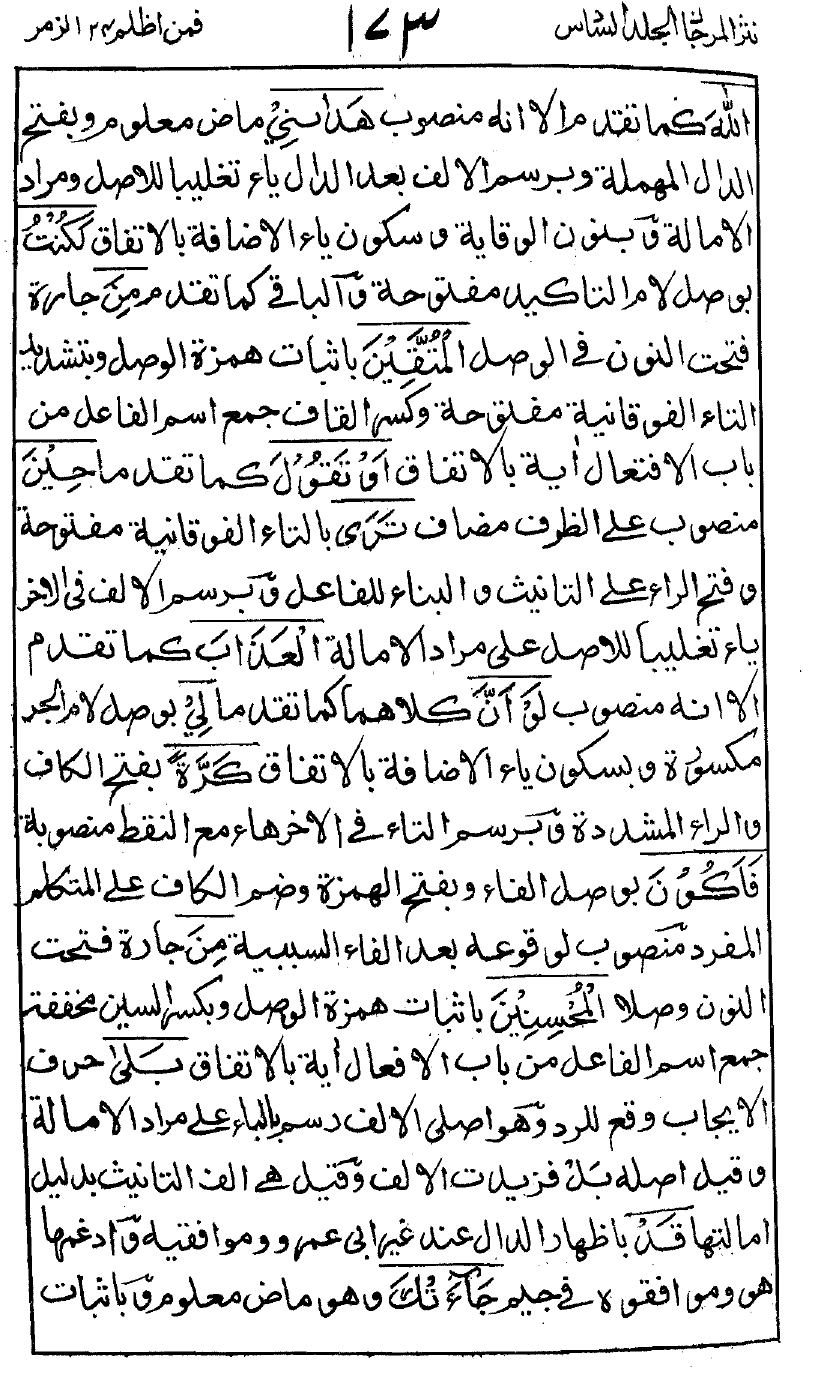 نثر المرجان الجلد السادس ١٧٣ فمن اظلم ٢٤ الزمر
اللهَ كما تقدم الا انه منصوب هَدٰىنِيْ ماض معلوم وبفتح
الدال المهملة وبرسم الالف بعد الدال ياء تغليبا للاصل ومراد
الامالة وَبنون الوقاية وسكون ياء الاضافة بالاتفاق لَكُنْتُ
بوصل لام التاكيد مفتوحة وَالباقي كما تقدم مِنَ جارة
فتحت النون في الوصل الْمُتَّقِيْنَ باثبات همزة الوصل وبتشديد
التاء الفوقانية مفتوحة وكسر القاف جمع اسم الفاعل من
باب الافتعال أية بالاتفاق اَوْ تَقُوْلَ كما تقدما حِيْنَ
منصوب على الظرف مضاف تَرَى بالتاء الفوقانية مفتوحة
وفتح الراء على التانيث والبناء للفاعل وَبرسم الالف في الاخر
ياء تغليبا للاصل على مراد الامالة الْعَذَابَ كما تقدم
الا انه منصوب لَوْ اَنَّ كلاهما كما تقدما لِيْ بوصل لام الجر
مكسورة وبسكون ياء الاضافة بالاتفاق كَرَّةً بفتح الكاف
والراء المشددة وَبرسم التاء في الاخر هاء مع النقط منصوبة
فَاَكُوْنَ بوصل الفاء وبفتح الهمزة وضم الكاف على المتكلم
المفرد منصوب لوقوعه بعد الفاء السببية مِنَ جارة فتحت
النون وصلا الْمُحْسِنِيْنَ باثبات همزة الوصل وبكسر السين مخففة
جمع اسم الفاعل من باب الافعال أية بالاتفاق بَلٰى حرف
الايجاب وقع للرد وَهو اصلى الالف رسم بالياء على مراد الامالة
وقيل اصله بَلْ فزيدت الالف وَقيل هي الف التانيث بدليل
امالتها قَدْ باظهار الدال عند غير ابى عمرو وموافقيه وَادغمها
هو وموافقوه في جيم جَآءَتْكَ وهو ماض معلوم وَباثبات